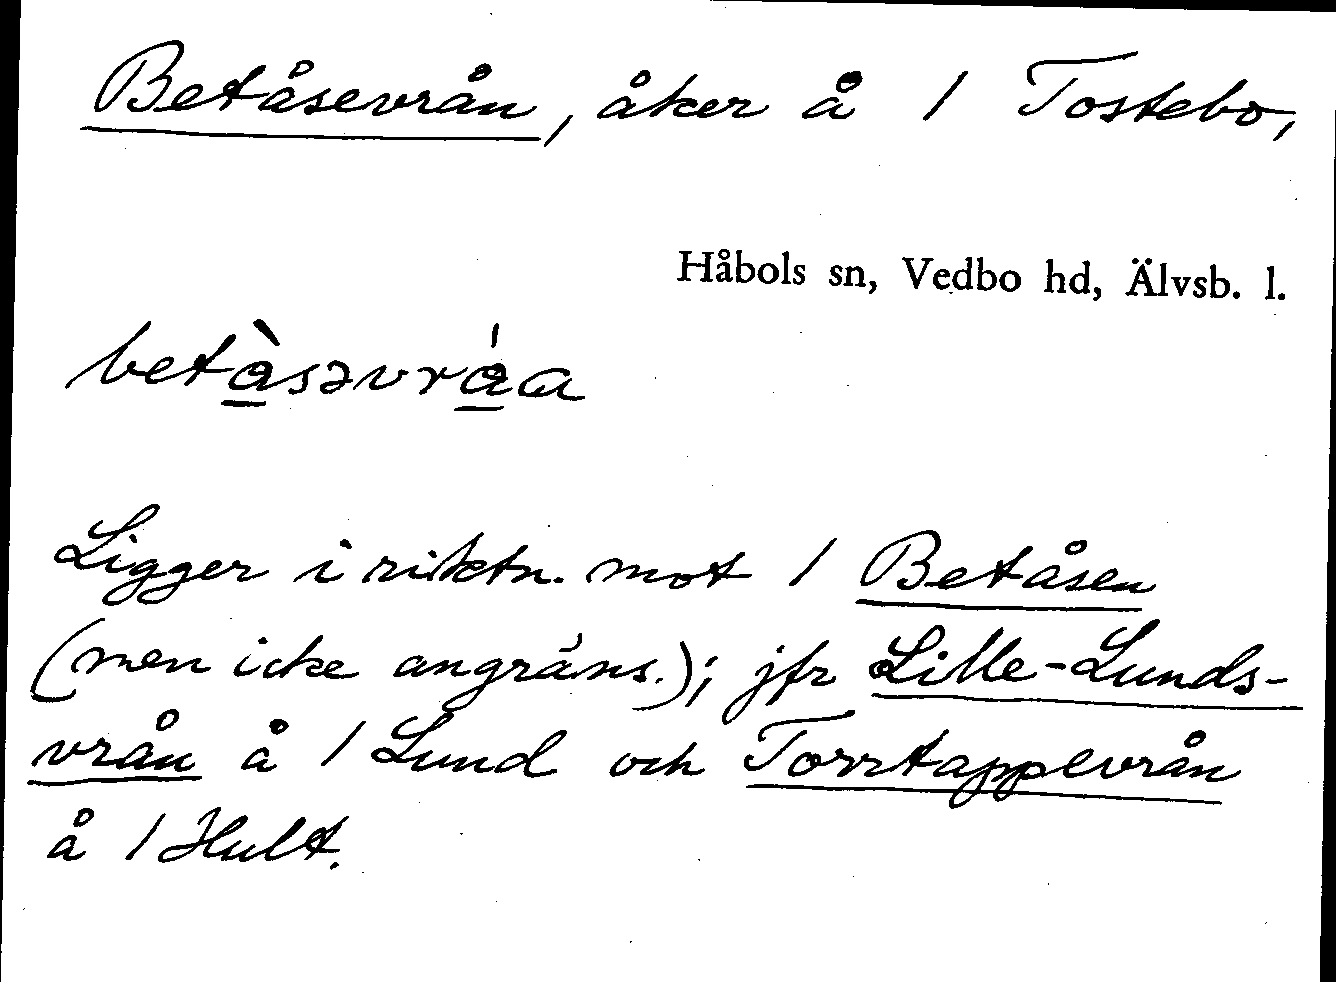 Betåsevrån, åker å / Tostebo,
Håbols sn, Vedbo hd, Älvsb. l.
betå̀səvrǻa
Ligger i riktn. mot / Betåsen
(men icke angräns.); jfr Lille-Lunds-
vrån å / Lund och Torrtappevrån
å / Hult.